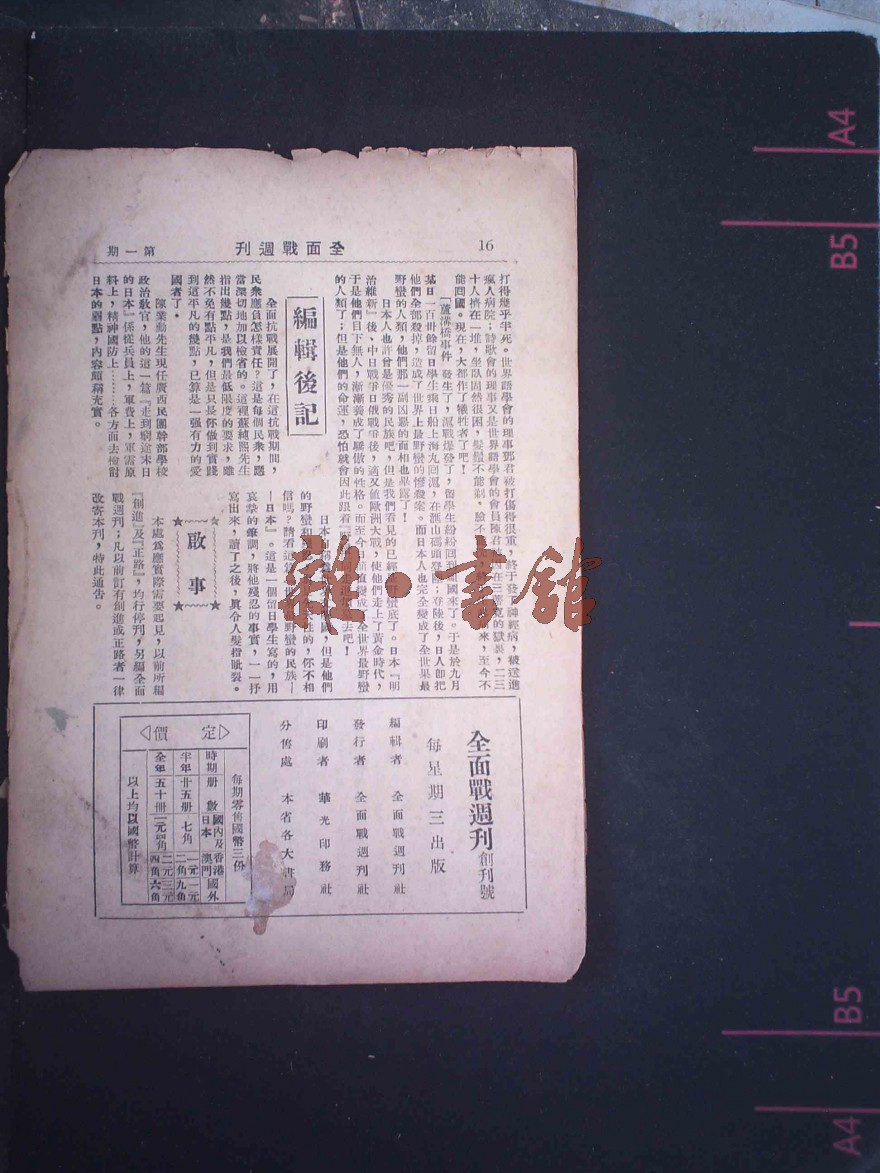 16
全面戰週刊
第一期
打得幾乎半死。世界語學會的理事郭君被打傷得很重，終于發了神經病，被送進
瘋人病院；詩歌會的理事又是世界語學會的會員陳君
十人擠在一堆，坐臥固然很困，髮鬚不能剃，臉不
能回國。現在，大都作了犧牲者了吧！
「蘆溝橋事件」發生了，滬戰爆發了，留學生紛紛回到祖國來了。于是於九月
某日一百卅餘留日學生乘日船上海丸回滬，在滙山碼頭登陸；登陸後，日人即把
他們全部殺掉，造成了世界上最野蠻的慘殺案。而日本人也完全變成了全世界最
野蠻的人類，他們那一副凶惡的面相也暴露了！
日本人也許曾是優秀的民族吧，但是我們看見的已經野蠻底了。日本「明
治維新」後，中日戰爭日俄戰爭後，適又值歐洲大戰，使他們走上了黃金時代，
于是他們目下無人，漸漸養成了驕傲的性格。而至今日
的人類了；但是他們的命運，恐怕就會因此跟着
編輯後記
全面抗戰展開了，在這抗戰期間，
民衆應負怎樣責任？這是每個民衆，應
當深切地加以檢省的。這裡蘇純熙先生
指出幾點，是我們最低限度的要求，雖
然不免有點平凡，但是只是你做到實踐
到這平凡的幾點，已算是一强有力的愛
國者了。
陳業勳先生現任廣西民團幹部學校
政治教官，他的這一篇『走到窮途末日
的日本』係從兵員上，軍費上，軍需原
料上，精神國防上………各方面去檢討
日本的弱點，內容頗稱充實。
信嗎？請看這篇『世界最野蠻的民族—
—日本』。這是一個留日學生寫的，用
哀摯的筆調，將他殘忍的事實，一一抒
寫出來，讀了之後，眞令人髮指眦裂。
啟事
本處爲應實際需要起見，以前所編
『創進』及『正路』，均行停刋，另編全面
戰週刋；凡以前訂有創進或正路者一律
改寄本刋，特此通告。
全面戰週刊 創刊號
每星期三出版
編輯者 全面戰週刊社
發行者 全面戰週刊社
印刷者 華光印務社
分售處 本省各大書局
定價
每期零售國幣三份
時期 册數 國內及日本 香港澳門 國外
半年 廿五册 七角 一元二角 一元九角
全年 五十册 一元四角 二元四角 三元六角
以上均以國幣計算
雜·書館
A4
B5
B5
A4